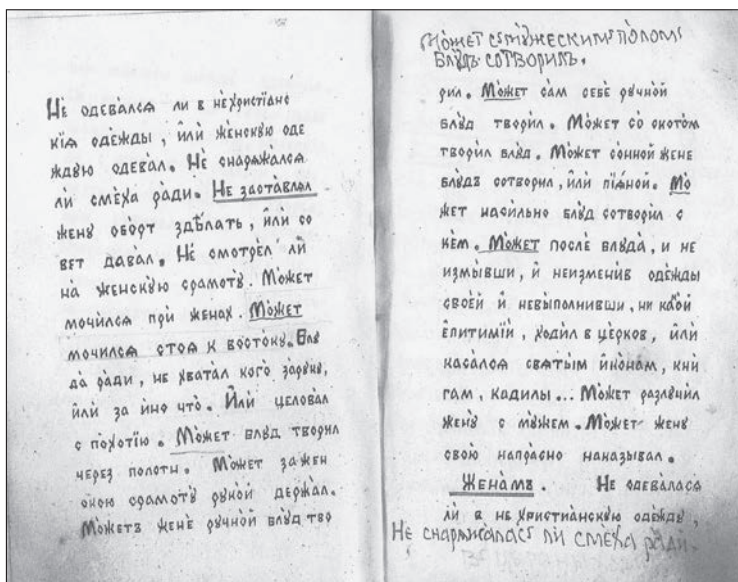 Нѐ одева́лся ли в не́христїанс
кїя оде́жды, и́ли же́нскую оде
жду́ю одева́л. Нѐ снаряжа́лся
лѝ сме́ха ра́ди. Нѐ заставля́л
женꙋ̀ або́рт здѣ́лать, и́ли со
ве́т дава́л. Нѐ смотре́л лѝ
на̀ же́нскꙋю срамотꙋ̀. Мо́жет
мочи́лся прѝ жена́х. Мо́жет
мочи́лся стоя к восто́кꙋ. Блꙋ
да ра́ди, не хвата́л кого за́рꙋкꙋ,
и́ли за и́но что̀. И́ли целова́л
с по́хотїю. Мо́жет блꙋд твори́л
че́рез полотн. Мо́жет за жен
скою срамотꙋ̀ рꙋко́й держа́л.
Мо́жетъ женѐ рꙋчно́й блꙋд тво
Мо́жет съ мꙋ́жескимъ по́ломъ
блꙋдъ сотвори́лъ.
рил. Мо́жет са́м себѐ рꙋчно́й
блꙋд твори́л. Мо́жет со ското́м
твори́л блꙋд. Мо́жет со́нной жене
блꙋдъ сотвори́л, и́ли пїя́ной. Мо́
жет наси́льно блꙋд сотвори́л с
ке́м. Мо́жет после блꙋда̀, и не
измы́вши, ѝ неизмени́в оде́жды
свое́й ѝ невы́полнивши, ни како́й
епити́мїи, ходи́л в це́рков, и́ли
каса́лся святы́м ико́нам, кни́
гам, кади́лы... Мо́жет разлꙋчи́л
женꙋ̀ с мꙋ́жем. Мо́жет женꙋ̀
свою̀ напра́сно нака́зывал.
Жена́мъ. Не одева́лася
лѝ в не христиа́нскꙋю оде́ждꙋ,
Не снаряжа́лась ли сме́ха ра́ди.